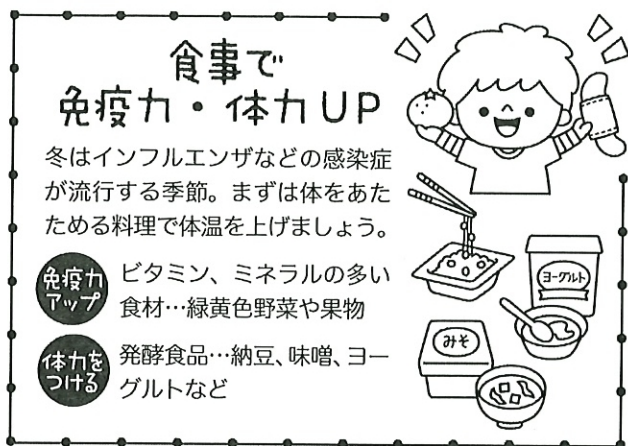 食事で
免疫力・体力UP
冬はインフルエンザなどの感染症
が流行する季節。まずは体をあた
ためる料理で体温を上げましょう。
免疫力
アップ
ビタミン、ミネラルの多い
食材…緑黄色野菜や果物
体力を
つける
発酵食品…納豆、味噌、ヨー
グルトなど
ヨーグルト
みそ